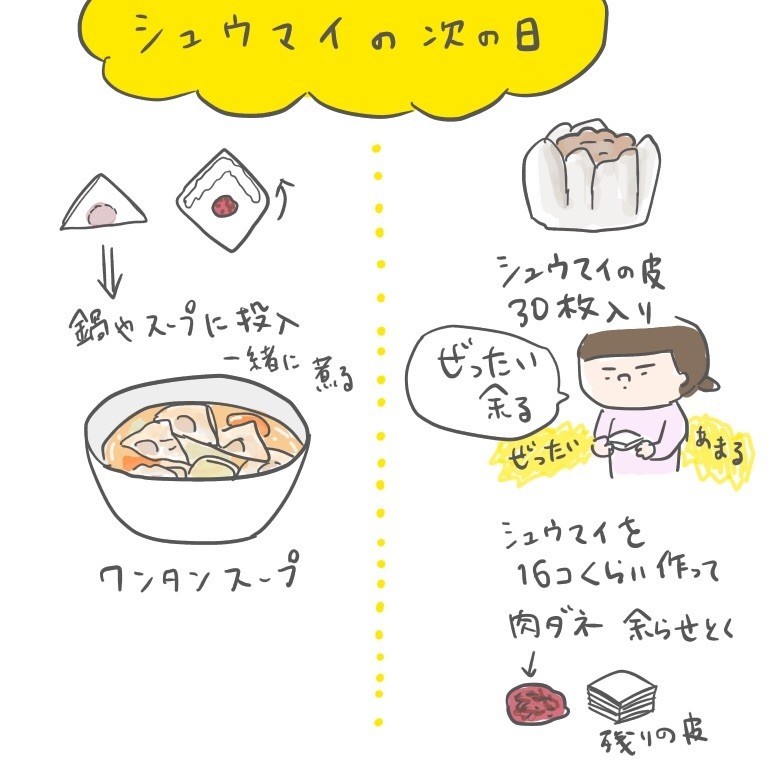 シュウマイの次の日
シュウマイの皮
30枚入り
ぜったい
余る
ぜったい
あまる
シュウマイを
16コくらい作って
肉ダネ 余らせとく
残りの皮
鍋やスープに投入
一緒に煮る
ワンタンスープ